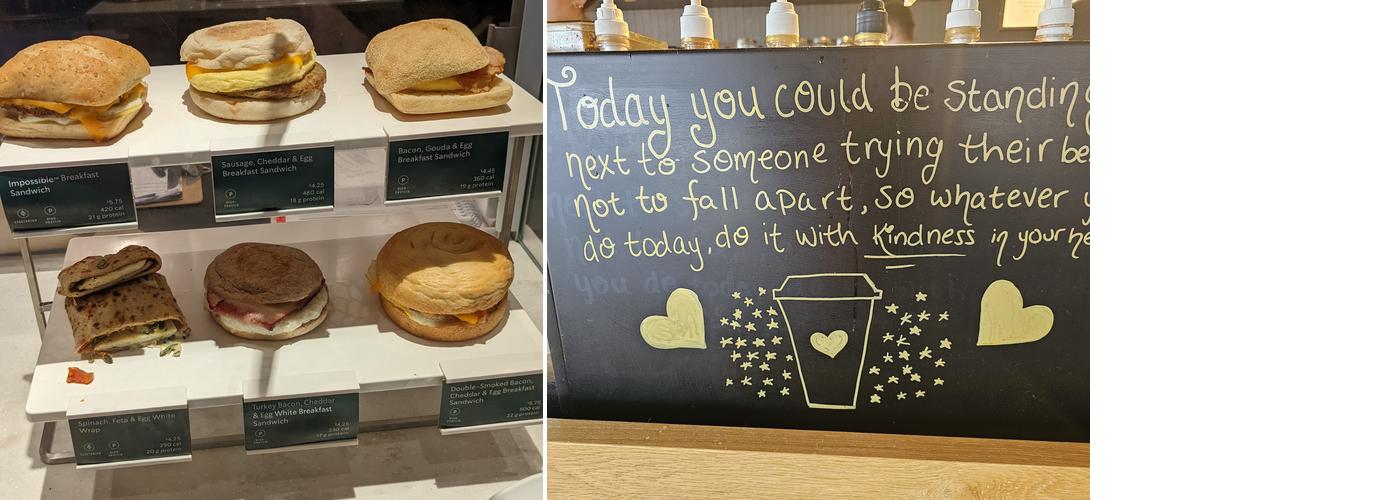 Impossible™ Breakfast
Sandwich
$5.75
420 cal
21 g protein
VEGETARIAN
HIGH-PROTEIN
Sausage, Cheddar & Egg
Breakfast Sandwich
$4.25
480 cal
18 g protein
HIGH-PROTEIN
Bacon, Gouda & Egg
Breakfast Sandwich
$4.45
360 cal
19 g protein
HIGH-PROTEIN
Spinach, Feta & Egg White
Wrap
$4.25
290 cal
20 g protein
VEGETARIAN
HIGH-PROTEIN
Turkey Bacon, Cheddar
& Egg White Breakfast
Sandwich
$4.25
230 cal
17 g protein
HIGH-PROTEIN
Double-Smoked Bacon,
Cheddar & Egg Breakfast
Sandwich
500 cal
22 g protein
Today you could be standing
next to someone trying their be
not to fall apart, so whatever y
do today, do it with Kindness in your he